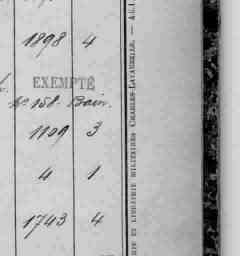 1898 4
EXEMPTÉ
1109 3
4 1
1743 4
RIE ET LIBRAIRIE MILITAIRES CHARLES-LAVAUZELLE. —